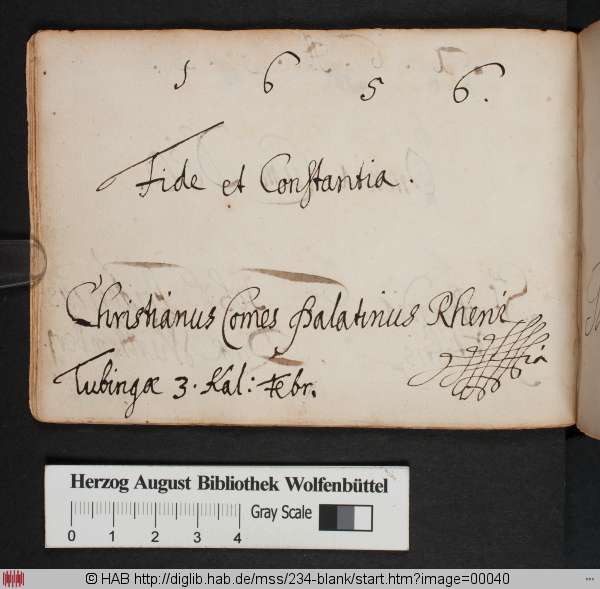 1 6 5 6.
Fide et Constantia.
Christianus Comes Palatinus Rheni
Tubingæ 3. Kal: Febr.
Herzog August Bibliothek Wolfenbüttel
Gray Scale
0 1 2 3 4
© HAB http://diglib.hab.de/mss/234-blank/start.htm?image=00040